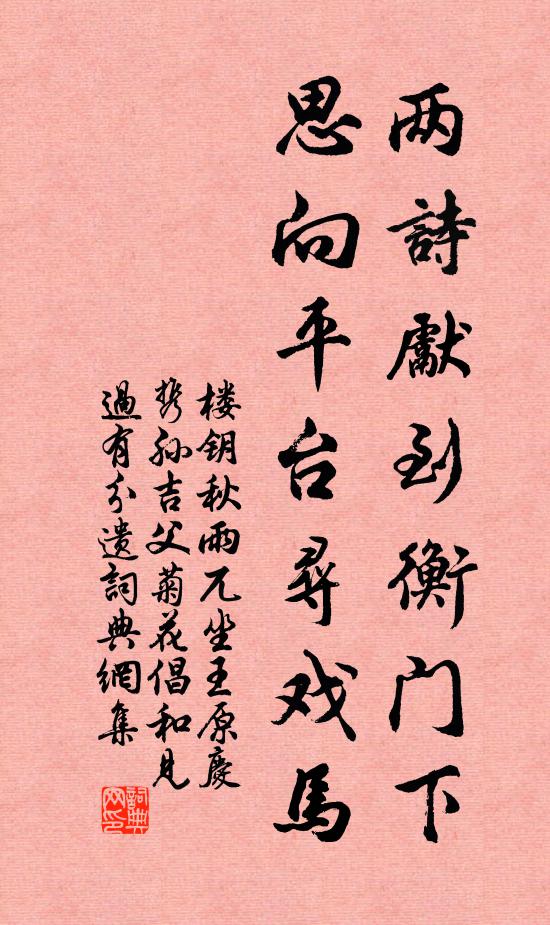 两詩獻到衡门下
思向平台尋戏馬
楼钥秋雨兀坐王原慶
携孙吉父菊花倡和見
過有分遗詞典網集
詞典網印